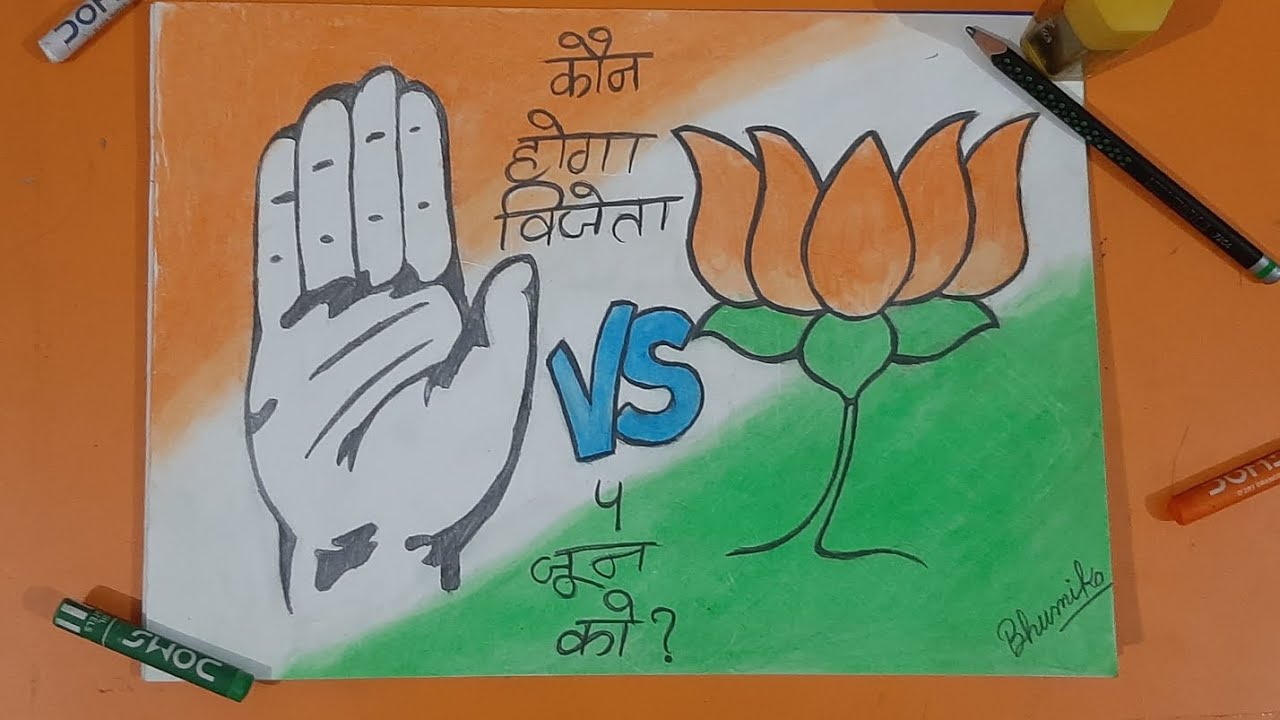 कौन
होगा
विजेता
VS
4
जून
को ?
Bhumika
DOMS
DOMS
DOMS